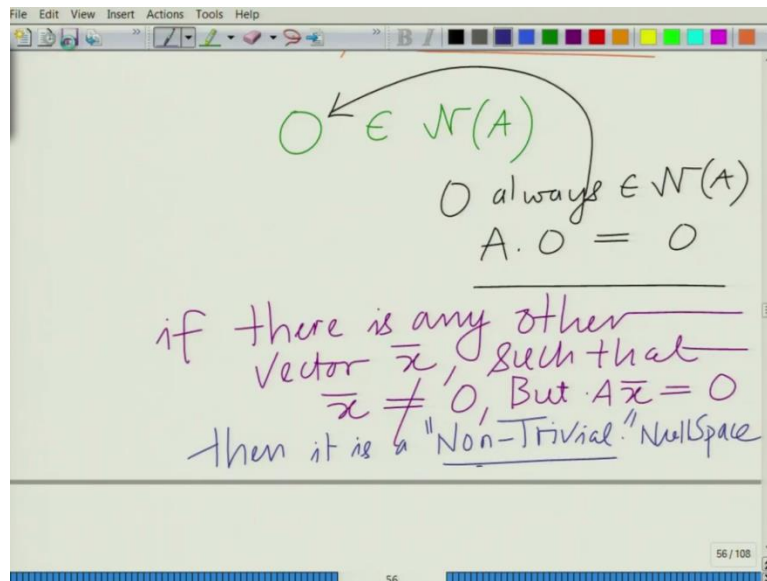 File Edit View Insert Actions Tools Help
B I
0 ∈ N(A)
0 always ∈ N(A)
A. 0 = 0
if there is any other
vector x̅, such that
x̅ ≠ 0, But A x̅ = 0
then it is a "Non-Trivial" NullSpace
56 / 108
56